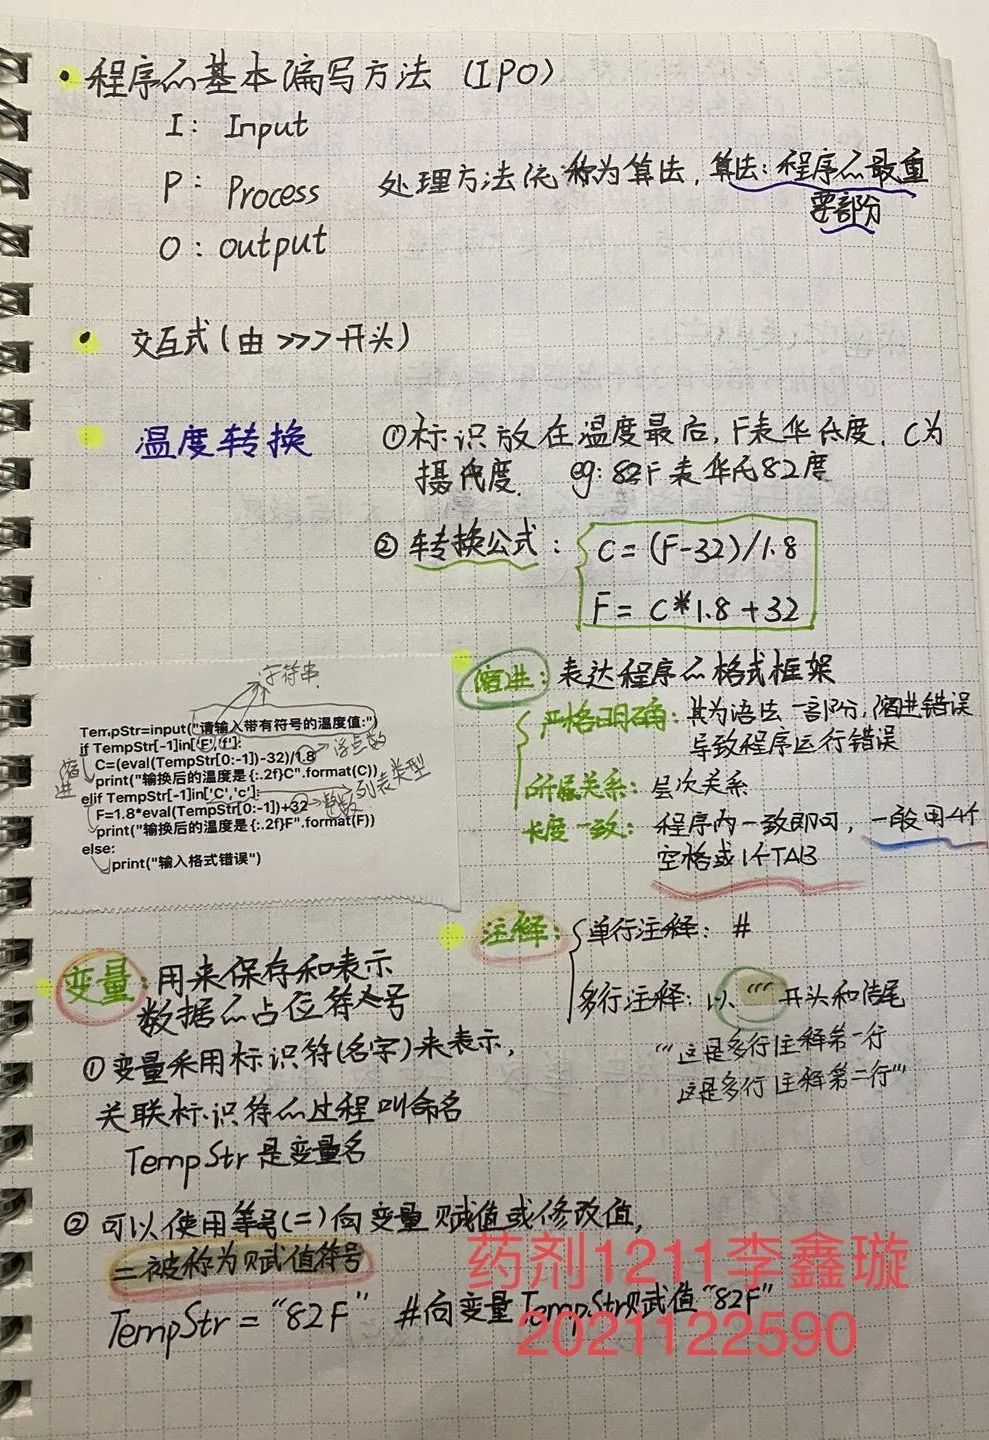 程序的基本编写方法 (IPO)
I: Input
P: Process 处理方法统称为算法, 算法: 程序的最重
要部分
O: output
交互式(由>>>开头)
温度转换
①标识放在温度最后, F表华氏度. C为
摄氏度. eg: 82F表华氏82度
②转换公式:
C=(F-32)/1.8
F= C*1.8+32
字符串
TempStr=input("请输入带有符号的温度值:")
if TempStr[-1]in['F','f']:
C=(eval(TempStr[0:-1])-32)/1.8 浮点数
print("输换后的温度是{:.2f}C".format(C))
elif TempStr[-1]in['C','c']: 列表类型
F=1.8*eval(TempStr[0:-1])+32 整数
print("输换后的温度是{:.2f}F".format(F))
else:
print("输入格式错误")
缩进
缩进: 表达程序的格式框架
严格明确: 其为语法一部分, 缩进错误
导致程序运行错误
所属关系: 层次关系
长度一致: 程序内一致即可, 一般用4个
空格或1个TAB
注释: 单行注释: #
多行注释: 以 ''' 开头和结尾
'''这是多行注释第一行
这是多行注释第二行'''
变量: 用来保存和表示
数据的占位符号
①变量采用标识符(名字)来表示,
关联标识符的过程叫命名
TempStr是变量名
②可以使用等号(=)向变量赋值或修改值,
=被称为赋值符号
TempStr = "82F" #向变量TempStr赋值"82F"
药剂1211李鑫璇
2021122590